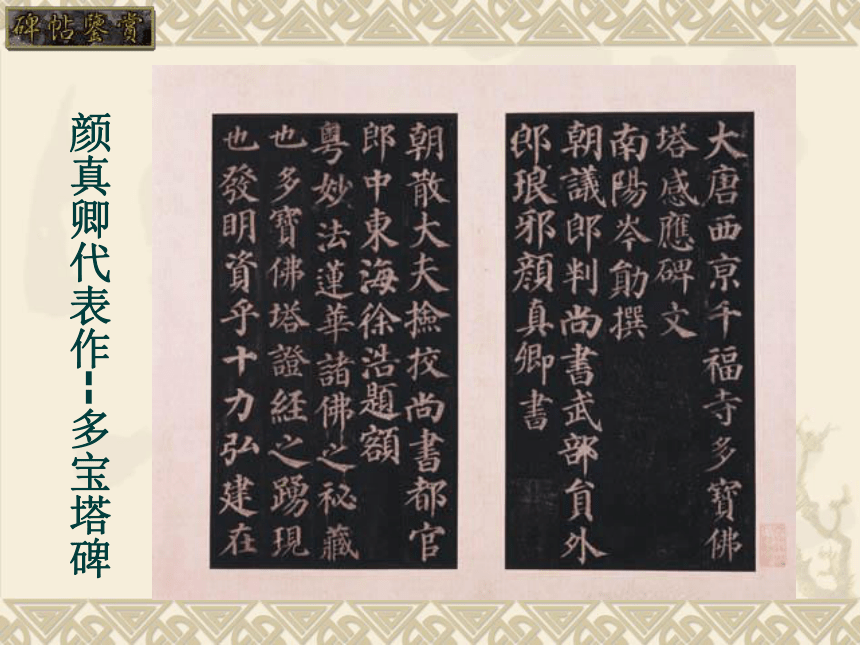 碑帖鑒赏
颜真卿代表作--多宝塔碑
大唐西京千福寺多寶佛
塔感應碑文
南陽岑勛撰
朝議郎判尚書武部員外
郎琅邪顏真卿書
朝散大夫撿校尚書都官
郎中東海徐浩題額
粵妙法蓮華諸佛之祕藏
也多寶佛塔證經之踴現
也發明資乎十力弘建在